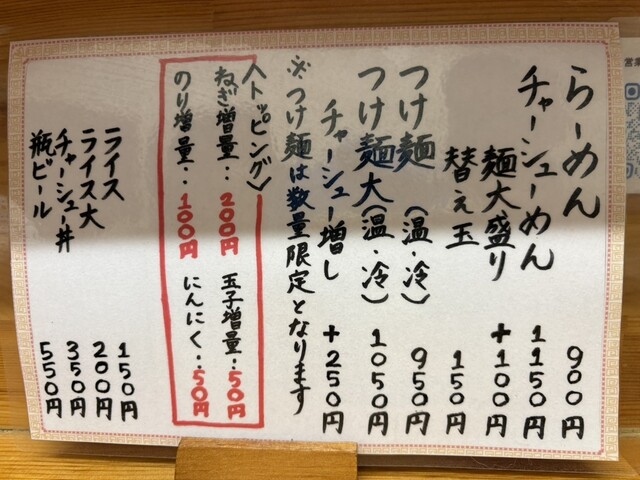 らーめん 900円
チャーシューめん 1150円
麺大盛り +100円
替え玉 150円
つけ麺 (温・冷) 950円
つけ麺大(温・冷) 1050円
チャーシュー増し +250円
※つけ麺は数量限定となります
〈トッピング〉
ねぎ増量‥200円 玉子増量‥50円
のり増量‥100円 にんにく‥50円
ライス 150円
ライス大 200円
チャーシュー丼 350円
瓶ビール 550円
営業